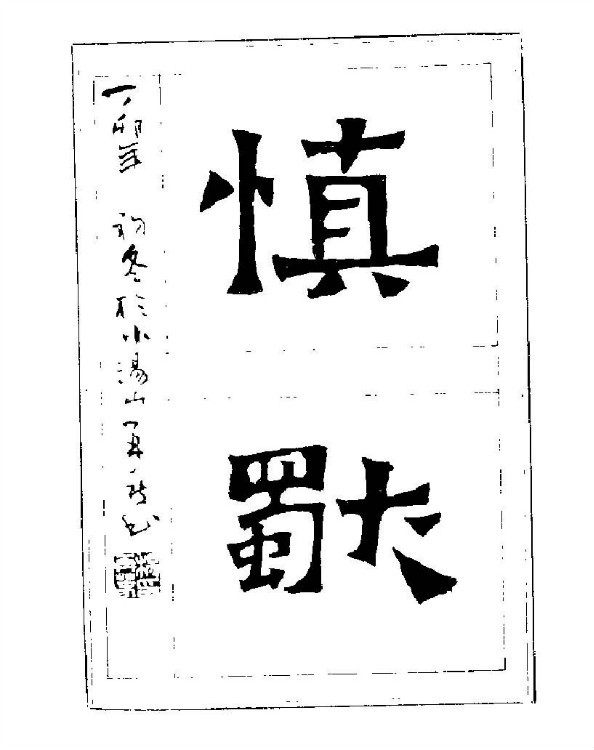 慎
獨
丁卯年 初冬於小湯山 书